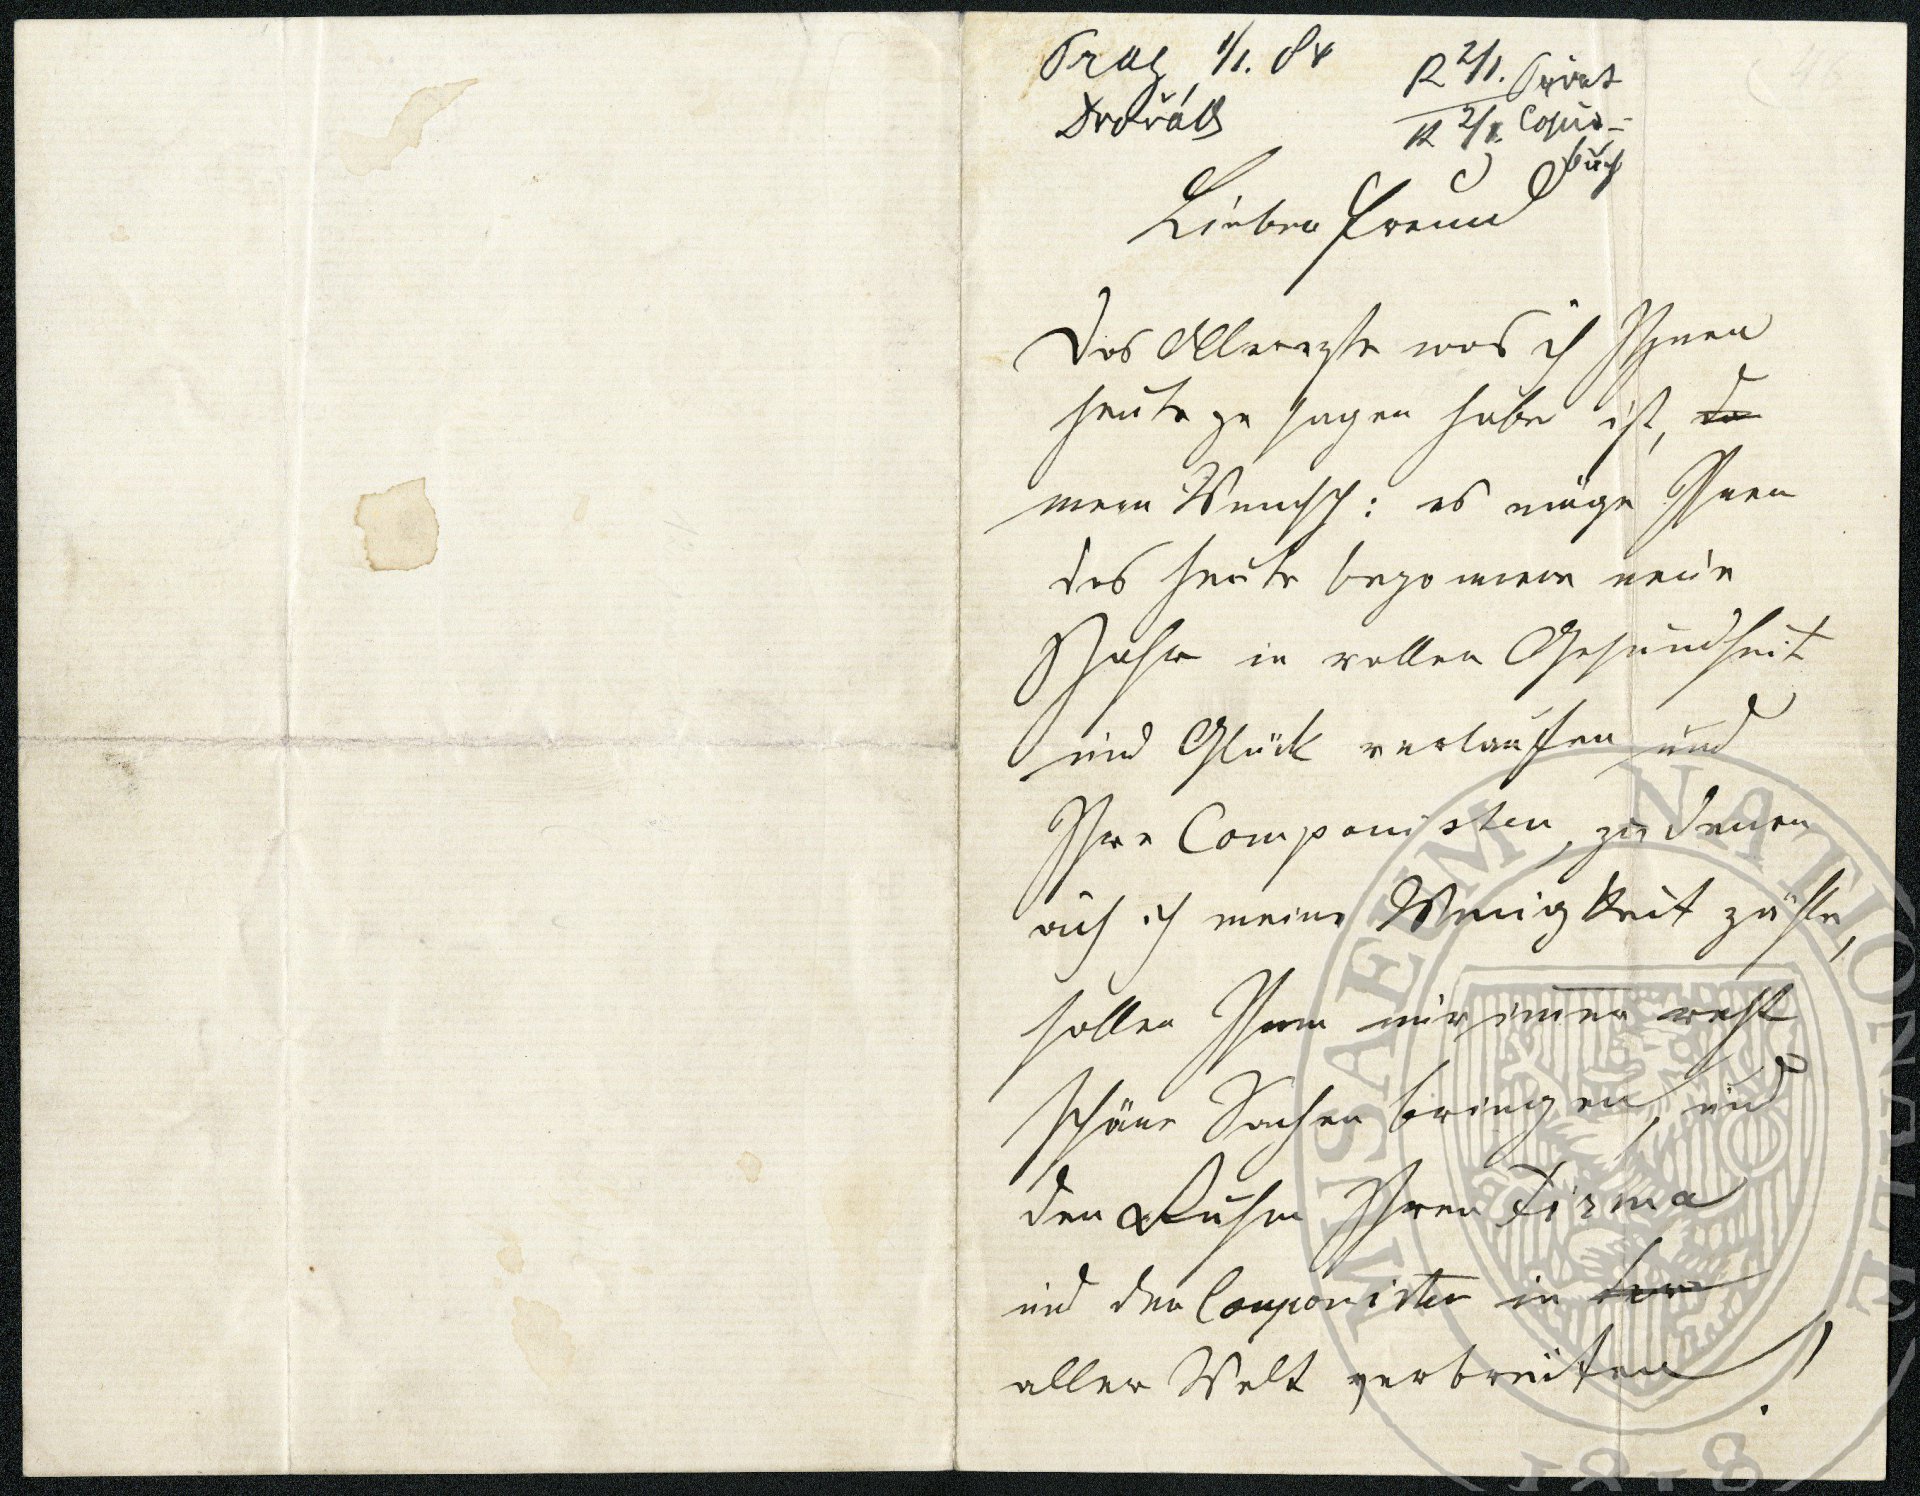 Prag, 1/1. 84
Dvořák
R 2/1. Privat
R 2/1. Copir-
buch
Lieber Freund
Das Allererste was ich Ihnen
heute zu sagen habe ist, da
mein Wunsch: es möge Ihnen
das heute begonnene neue
Jahr in voller Gesundheit
und Glück verlaufen und
Ihre Componisten, zu denen
auch ich meine Wenigkeit zähle,
sollen Ihnen nur immer recht
schöne Sachen bringen, und
den Ruhm Ihrer Firma
und der Componisten in
aller Welt verbreiten!
MUSAEUM NATIONALE
1818